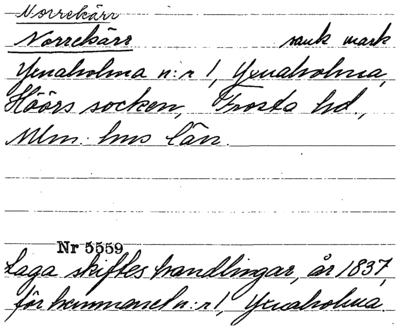 Norrekärr
Norrekärr sank mark
Yxnaholma n:r 1, Yxnaholma,
Höörs socken, Frosta hd.,
Mlm: hus län.
Nr 5559
Laga skiftes handlingar, år 1837,
för hemmanet n:r 1, Yxnaholma.